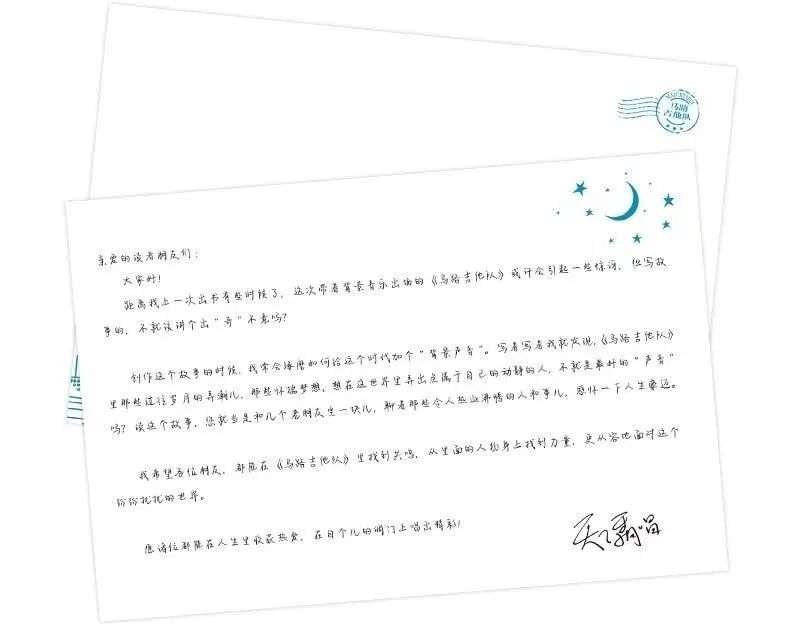 马路
吉他队
亲爱的读者朋友们：
大家好！
距离我上一次出书有些时候了，这次带着背景音乐出场的《马路吉他队》或许会引起一些惊讶，但写故
事的，不就该讲个出“奇”不意吗？
创作这个故事的时候，我常会琢磨如何给这个时代加个“背景声音”。写着写着我就发现，《马路吉他队》
里那些过往岁月的弄潮儿，那些怀揣梦想、想在这世界里弄出点属于自己的动静的人，不就是最好的“声音”
吗？读这个故事，您就当是和几个老朋友坐一块儿，聊着那些令人热血沸腾的人和事儿，感怀一下人生乐运。
我希望各位朋友，都能在《马路吉他队》里找到共鸣，从里面的人物身上找到力量，更从容地面对这个
纷纷扰扰的世界。
愿诸位都能在人生里收获热爱，在自个儿的调门上唱出精彩！
天下霸唱